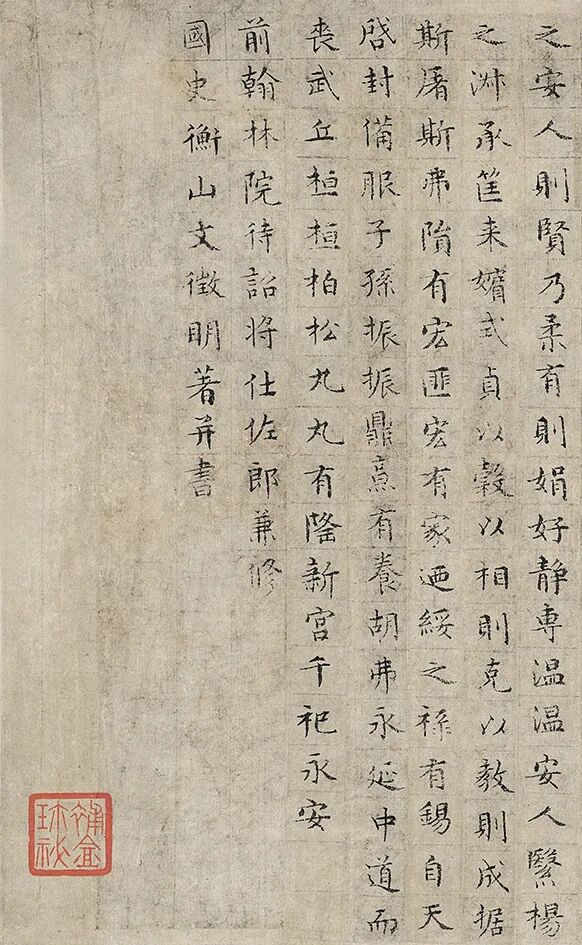 之安人則賢乃柔有則娟好静專温温安人繄楊
之淑承筐来嬪式貞以穀以相則克以教則成据
斯屠斯弗隕有宏匪宏有家迺綏之禄有錫自天
啓封備服子孫振振鼎烹有養胡弗永延中道而
喪武丘桓桓柏松丸丸有隆新宫千祀永安
前翰林院待詔将仕佐郎兼修
國史衡山文徵明著并書
補盦
珍祕